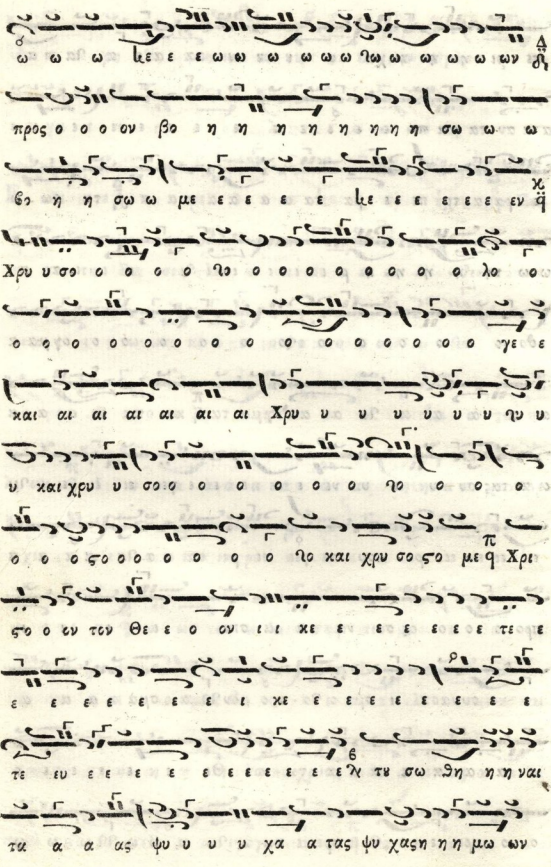 ω ω ω ω ϗε ε ε ω ω ω ω ω ω ω ω ω ω ω ω ω ων
προς ο ο ον βο η η η η η η η η η σω ω ω
βο η η σω ω με ε ε ε ε ε ε ε ε ε ε ε ε εν
Χρυ υ σο ο ο ο ο ο ο ο ο ο ο ο ο ο λο ο
ο ο ο ο ο ο ο ο ο ο ο ο ο ο ο ο ο γε ε
και αι αι αι αι αι αι Χρυ υ υ υ υ υ υ υ υ υ
υ και χρυ υ σο ο ο ο ο ο ο ο ο ο ο
ο ο ο ϛο ο ο ο ο ο ο ο ο και χρυ σο ϛο με Χρι
ϛο ο ον τον Θε ε ο ον ι ι κε ε ε ε ε ε ε τε ε
ε ε ε ε ε ε ε ι κε ε ε ε ε ε ε ε ε
τε ευ ε ε ε ε ε ε ε ε ε ε ε ε τȣ σω θη η η ναι
τα α α ας ψυ υ υ υ χα α τας ψυ χας η η η μω ων